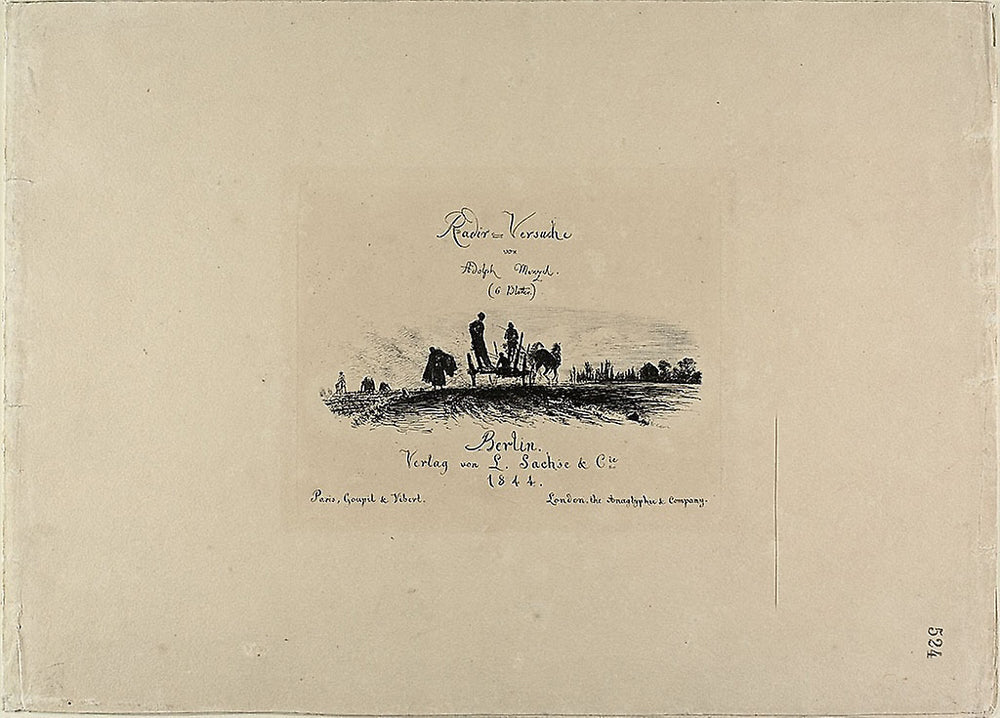 Radir=Versuche
von
Adolph Menzel.
(6 Blätter.)
Berlin.
Verlag von L. Sachse & Cie
1844.
Paris, Goupil & Vibert.
London. the Anaglyphic & Company.
524